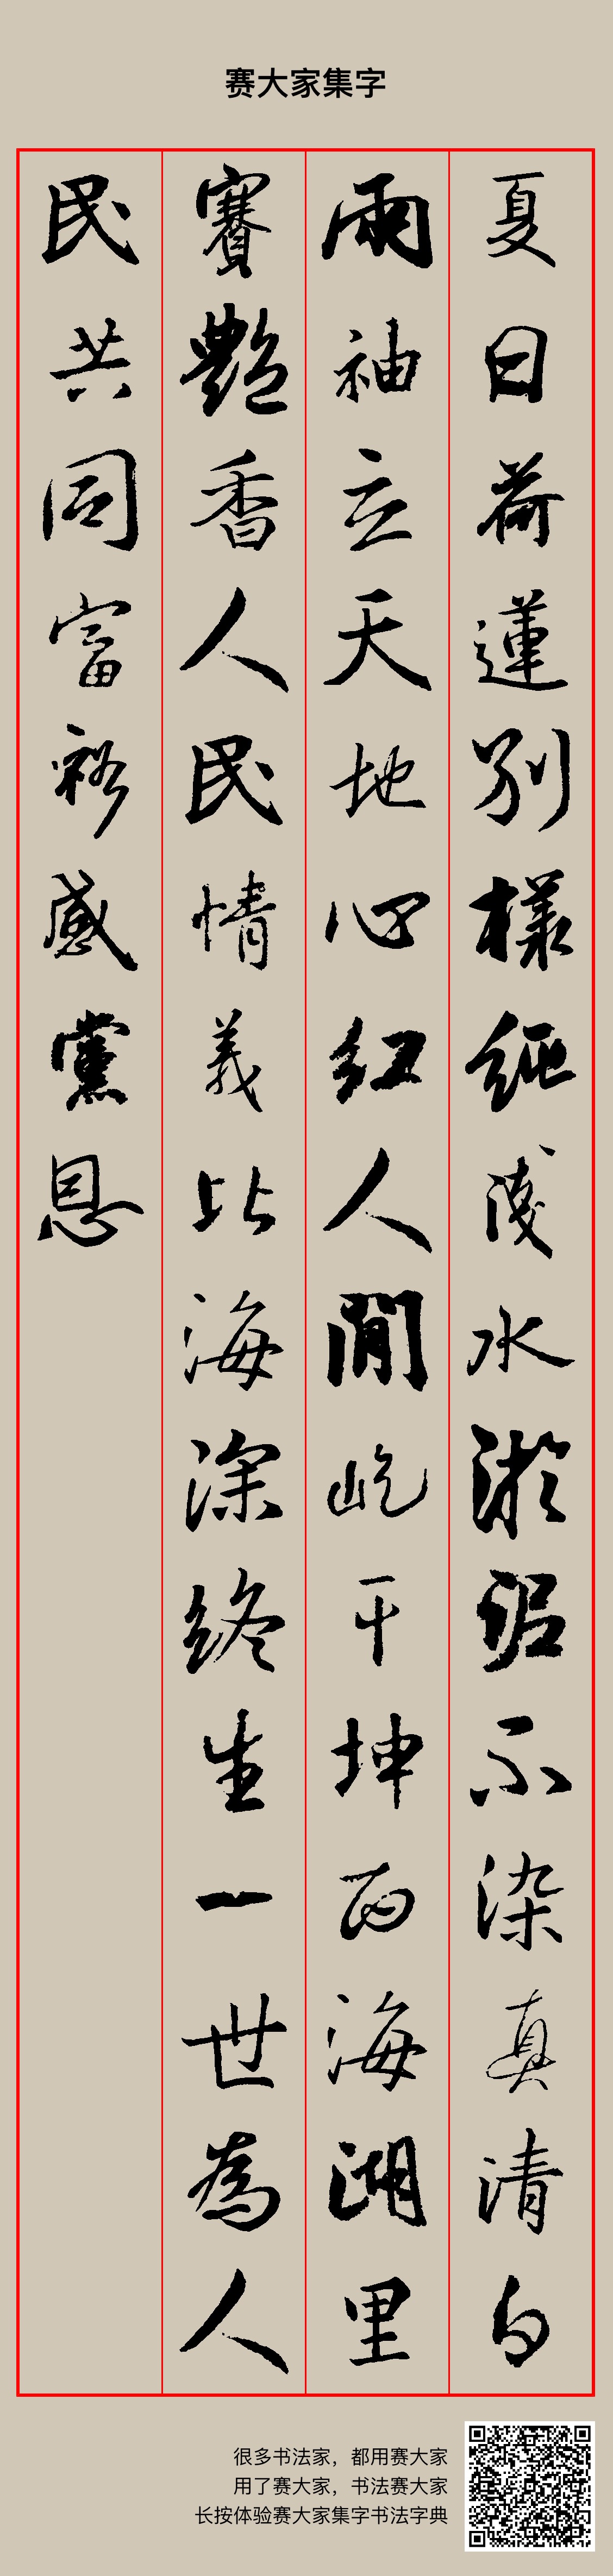 赛大家集字
夏日荷蓮別樣純淺水淤泥不染真清白
雨袖立天地心紅人間屹干坤西海湖里
賽豔香人民情義比海深終生一世為人
民共同富裕感黨恩
很多书法家，都用赛大家
用了赛大家，书法赛大家
长按体验赛大家集字书法字典